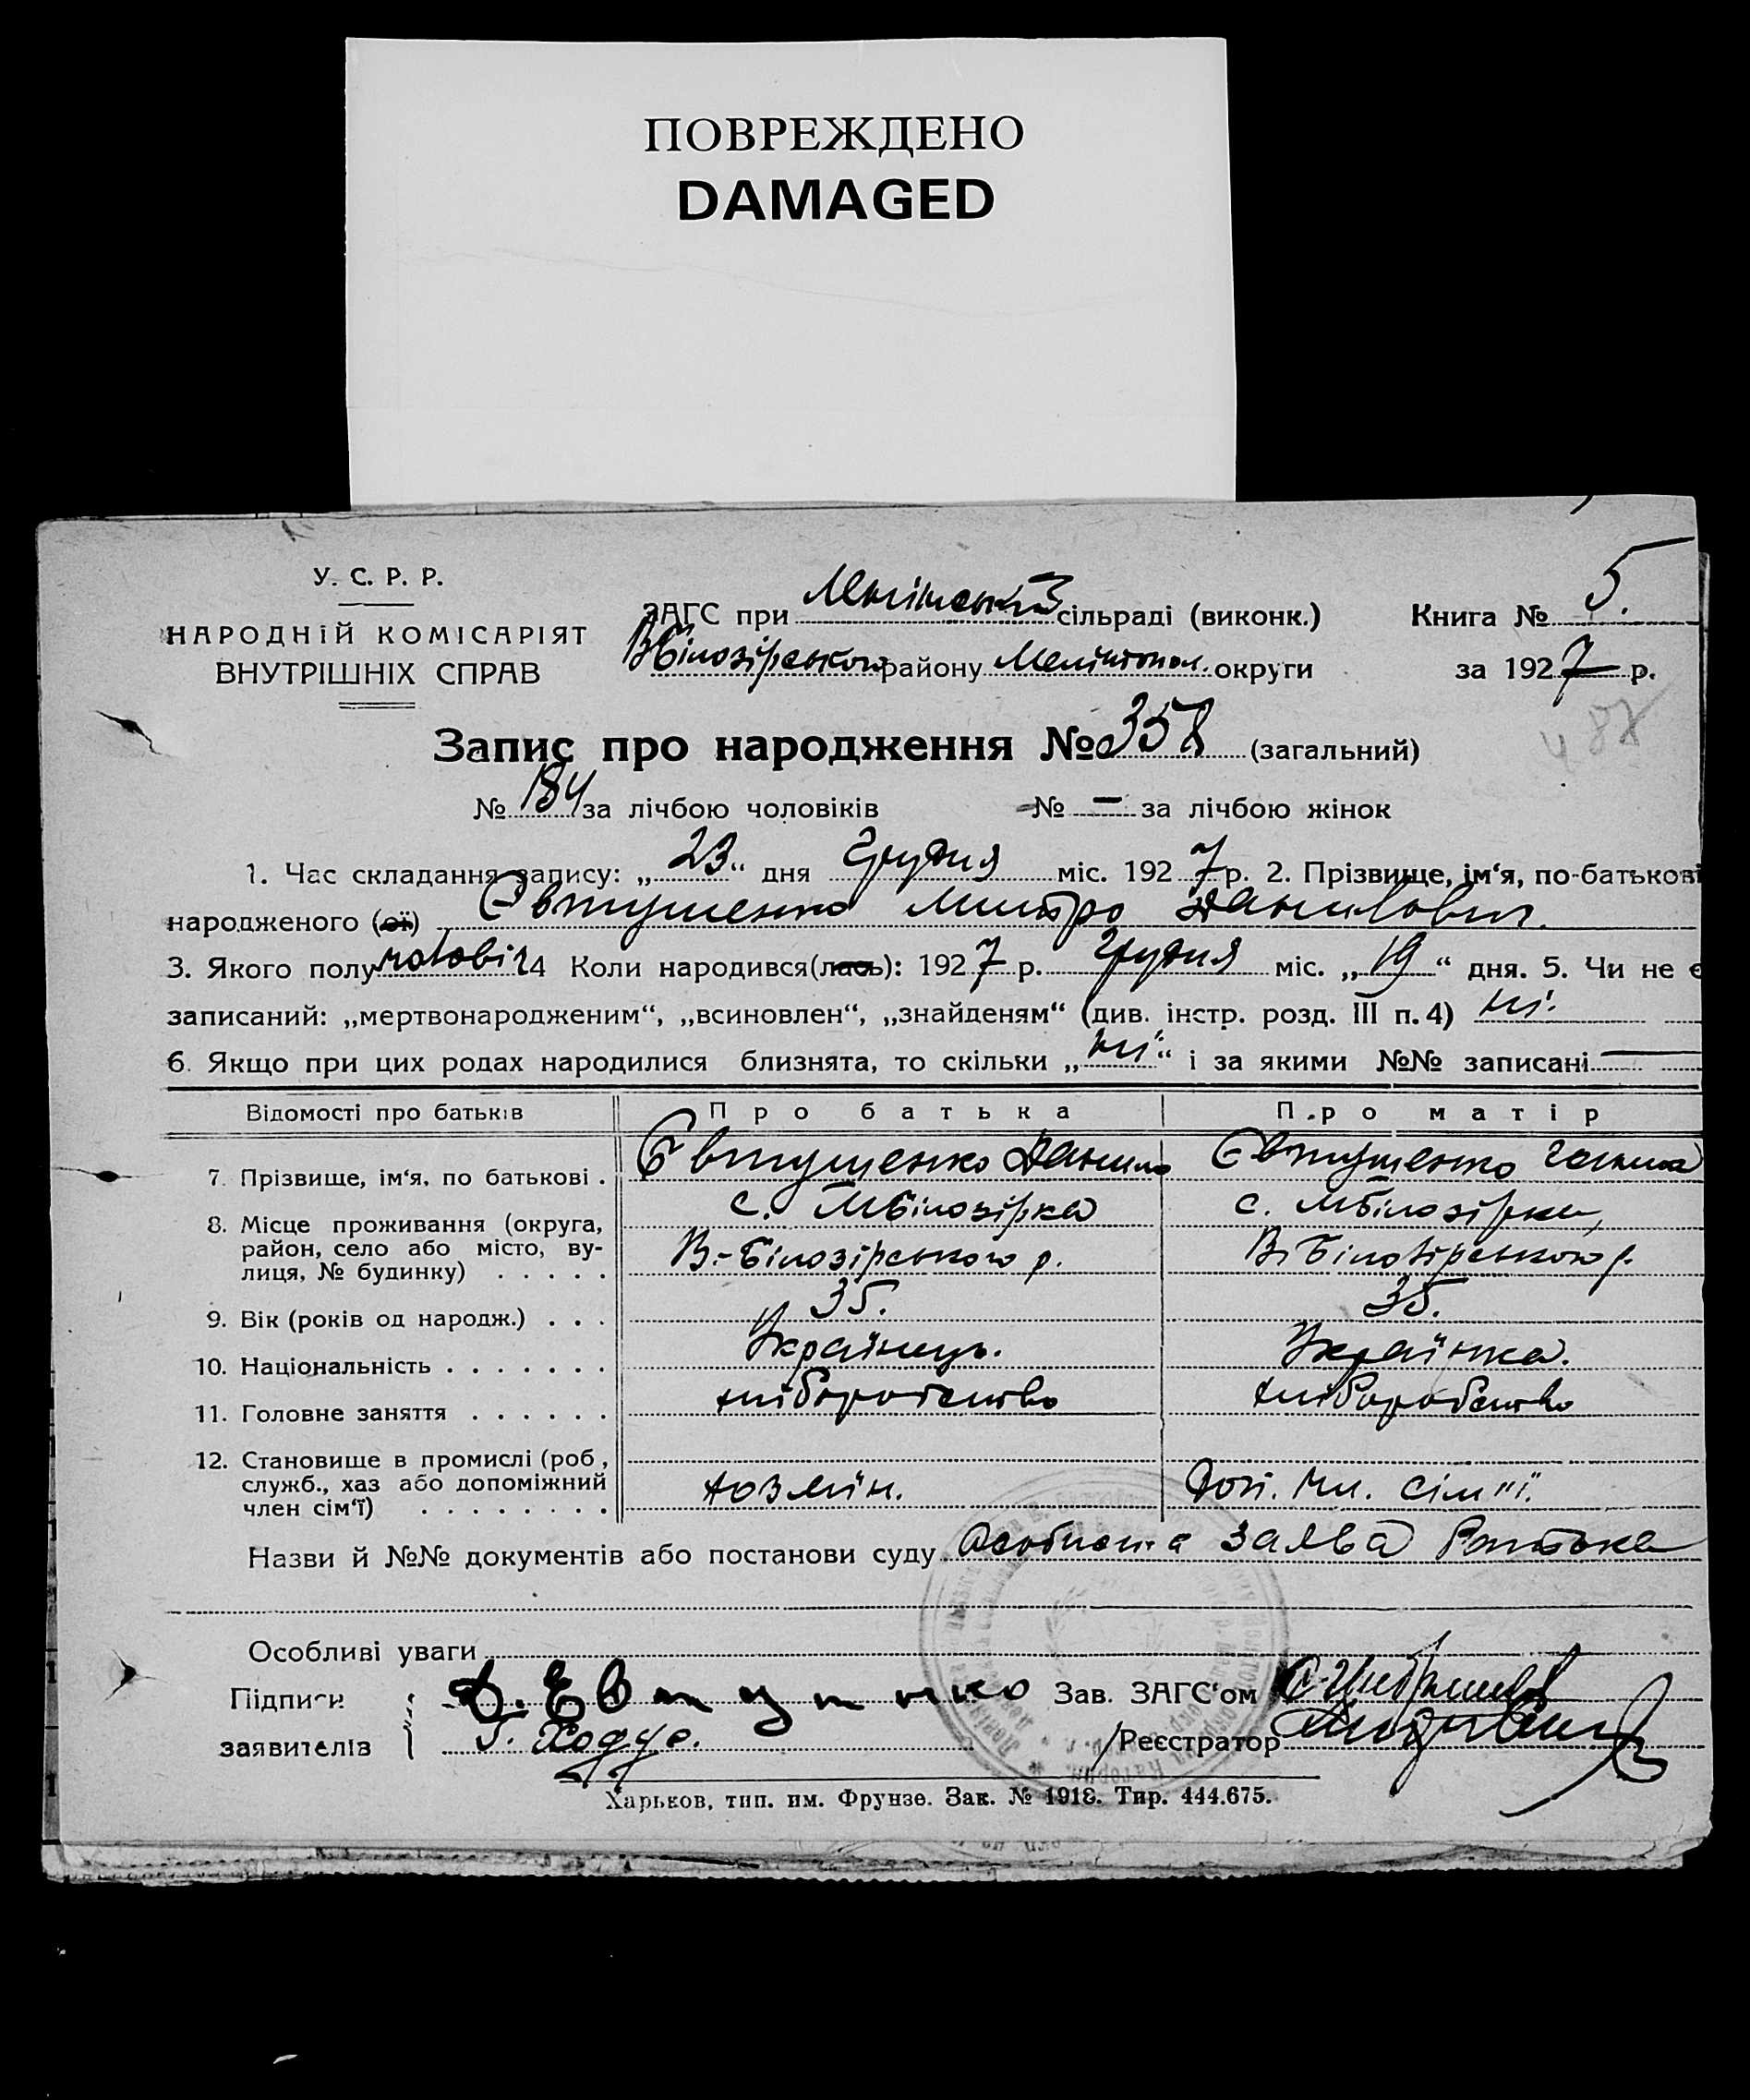 ПОВРЕЖДЕНО
DAMAGED
У. С. Р. Р.
НАРОДНІЙ КОМІСАРІЯТ
ВНУТРІШНІХ СПРАВ
ЗАГС при Ленінській сільраді (виконк.)
ВБілозірського району Мелітопол. округи
Книга № 5.
за 1927 р.
Запис про народження № 358 (загальний)
487
№ 184 за лічбою чоловіків № — за лічбою жінок
1. Час складання запису: „23“ дня Грудня міс. 1927 р. 2. Прізвище, ім‘я, по-батькові
народженого (ої) Євтушенко Митро Данилович.
3. Якого полу чоловіч 4 Коли народився(лась): 1927 р. Грудня міс. „19“ дня. 5. Чи не є
записаний: „мертвонародженим“, „всиновлен“, „знайденям“ (див. інстр. розд. III п. 4) ні.
6. Якщо при цих родах народилися близнята, то скільки „ні“ і за якими №№ записані —
Відомості про батьків Про батька Про матір
7. Прізвище, ім‘я, по батькові . Євтушенко Данило Євтушенко Ганна
8. Місце проживання (округа, район, село або місто, ву-лиця, № будинку) . . . . . с. МБілозірка В.-Білозірського р. с. МБілозірка, В. Білозірського р.
9. Вік (років од народж.) . . . 35. 35.
10. Національність . . . . . . . Українець. Українка.
11. Головне заняття . . . . . . хліборобство хліборобство
12. Становище в промислі (роб, служб., хаз або допоміжний член сім‘ї) . . . . . . . . хозяїн. Доп. чл. сім'ї.
Назви й №№ документів або постанови суду Особиста заява Батька
Особливі уваги
Підписи Д. Евтушенко Зав. ЗАГС‘ом
заявителів Г. Ходус. Реєстратор
Харьков, тип. им. Фрунзе. Зак. № 1918. Тир. 444.675.